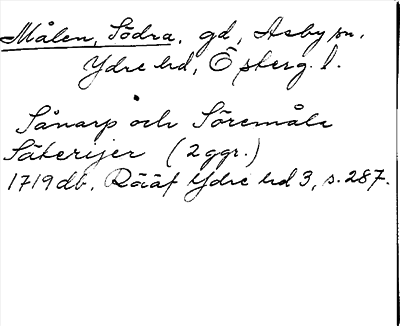 Målen, Södra, gd, Asby sn,
Ydre hd, Österg. l.
Sånarp och Söremåla
Säterijer (2 ggr.)
1719 db. Rääf Ydre hd 3, s. 287.